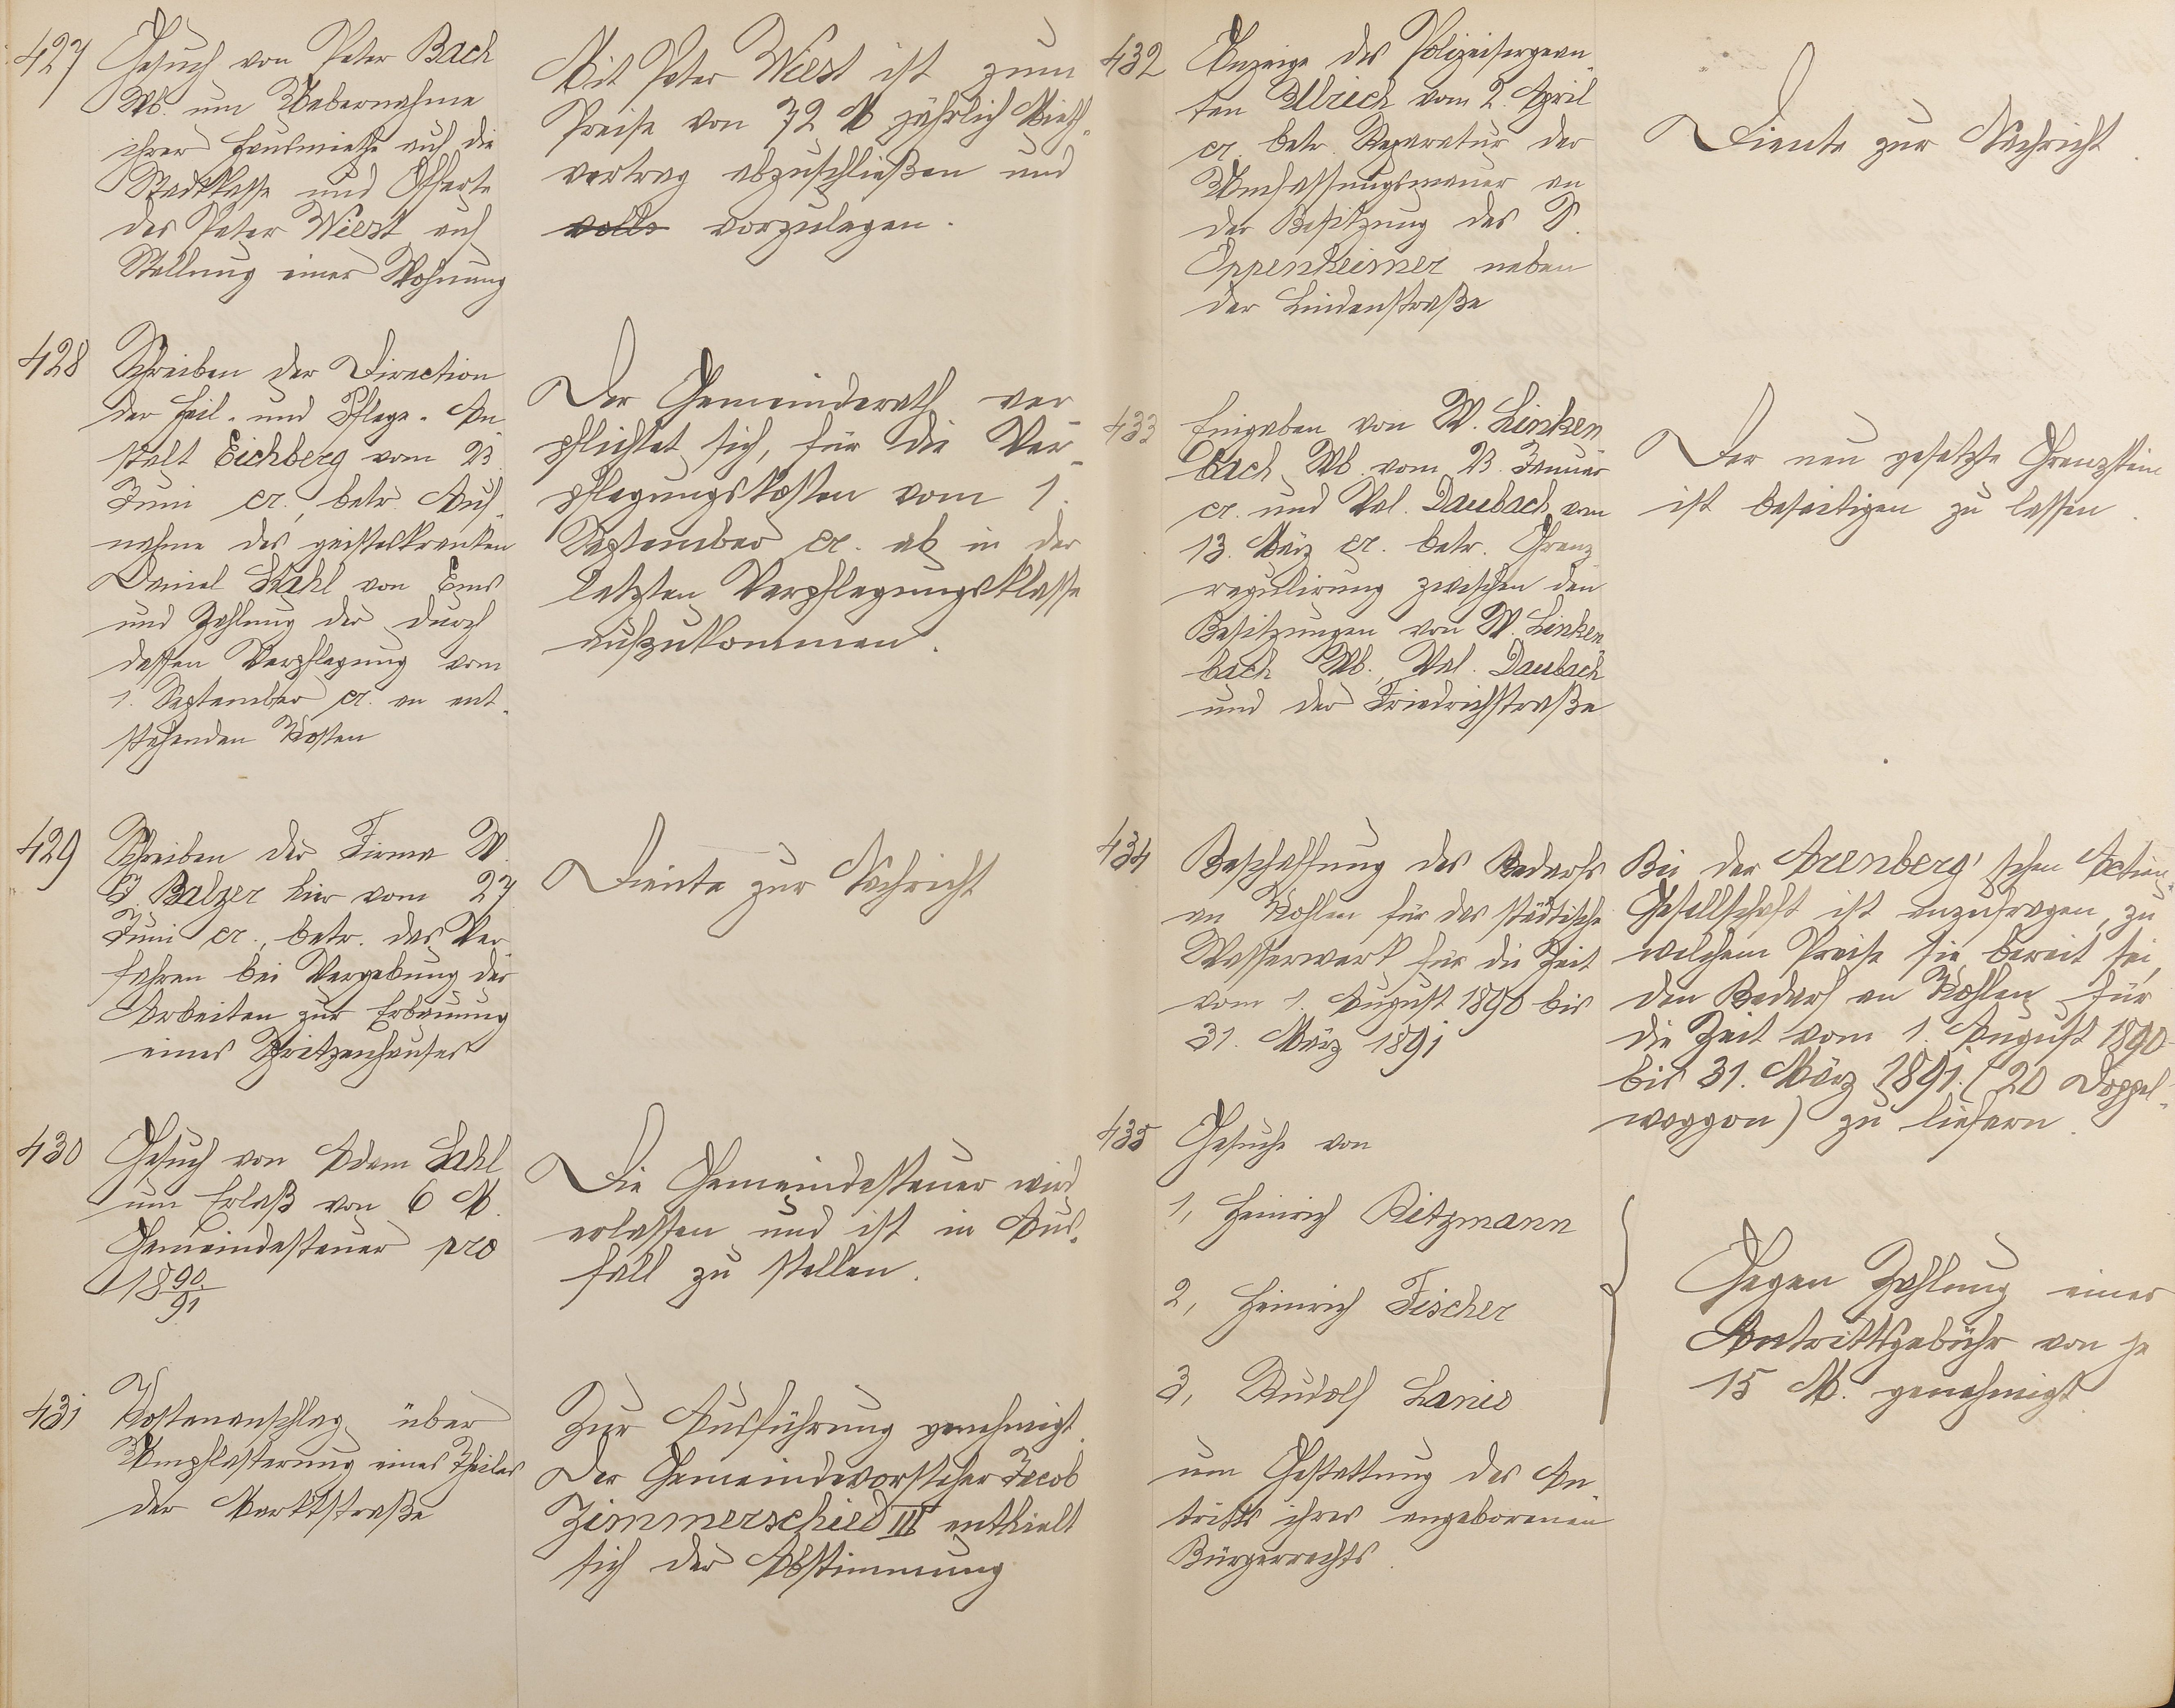 427
Gesuch von Peter Bach
Wb. um Uebernahme
ihrer Hausmiethe auf die
Stadtkasse und Offerte
des Peter Wiest auf
Stellung einer Wohnung
Mit Peter Wiest ist zum
Preise von 72 M jährlich Mieth-
vertrag abzuschließen und
vorzulegen.
428
Schreiben der Direction
der Heil- und Pflege-An-
stalt Eichberg vom 23.
Juni cr., betr. Auf-
nahme des geisteskranken
Daniel Stahl von Ems
und Zahlung der durch
dessen Verpflegung vom
1. September cr. an ent-
stehenden Kosten
Der Gemeinderath ver-
pflichtet sich, für die Ver-
pflegungskosten vom 1.
September cr. ab in der
letzten Verpflegungsklasse
aufzukommen.
429
Schreiben der Firma W.
J. Balzer hier vom 27
Juni cr., betr. das Ver-
fahren bei Vergebung der
Arbeiten zur Erbauung
eines Spritzenhauses
Diente zur Nachricht
430
Gesuch von Adam Stahl
um Erlaß von 6 M.
Gemeindesteuer pro
1890/91
Die Gemeindesteuer wird
erlassen und ist in Aus-
fall zu stellen.
431
Kostenanschlag über
Umpflasterung eines Theiles
der Marktstraße
Zur Ausführung genehmigt.
Der Gemeindevorsteher Jacob
Zimmerschied III enthielt
sich der Abstimmung
432
Anzeige des Polizeisergean-
ten Ulrich vom 2. April
cr. betr. Reparatur der
Umfassungsmauer an
der Besitzung des S.
Oppenheimer neben
der Lindenstraße
Diente zur Nachricht.
433
Eingaben von W. Linken-
bach Wb. vom 23. Januar
cr. und Val. Daubach vom
13. März cr. betr. Grenz-
regulirung zwischen den
Besitzungen von W. Linken-
bach Wb., Val. Daubach
und der Friedrichstraße
Der neu gesetzte Grenzstein
ist beseitigen zu lassen.
434
Beschaffung des Bedarfs
an Kohlen für das städtische
Wasserwerk für die Zeit
vom 1. August 1890 bis
31. März 1891
Bei der Arenberg'schen Actien-
Gesellschaft ist anzufragen, zu
welchem Preise sie bereit sei,
den Bedarf an Kohlen für
die Zeit vom 1. August 1890
bis 31. März 1891. (20 Doppel-
waggon) zu liefern.
435
Gesuche von
1, Heinrich Ritzmann
2, Heinrich Fischer
3, Rudolf Lanio
um Gestattung des An-
tritts ihres angeborenen
Bürgerrechts.
Gegen Zahlung einer
Antrittsgebühr von je
15 M. genehmigt.